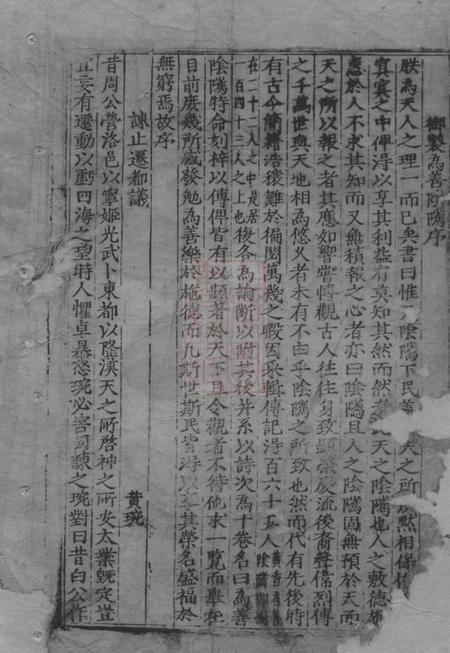 御製為善陰隲序
朕為天人之理一而已矣書曰惟天陰隲下民蓋天之所以默相保佑
冥冥之中俾淂以享其利益有莫知其然而然此天之陰隲也人之敷德施
惠於人不求其知而又無積報之心者亦曰陰隲且人之陰隲固無預於天而
天之所以報之者其應如響嘗慱觀古人往往身致顯榮慶流後裔聲偉烈傳
之千萬世與天地相為悠久者未有不由乎陰隲之所致也然而代有先後時
有古今簡籍浩穰難於徧閱萬幾之暇因采輯傳記淂百六十五人
在二十二人之中是居一百四十三人之上也後各為論斷以附其後并系以詩次為十卷名曰為善
陰隲特命刻梓以傳俾皆有以顯著於天下且令觀者不待他求一覽而舉在
目前庶幾所感發勉為善樂於施德而凡斯世斯民皆淂以享其榮名盛福於
無窮焉故序
諫止遷都議
黄琬
昔周公營洛邑以寧姬光武卜東都以隆漢天之所啓神之所安大業既定豈
宜妄有遷動以虧四海之望時人懼卓暴怒琬必害固諫之琬對曰昔白公作